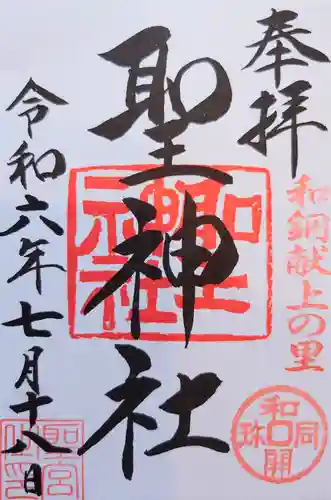 奉拝
和銅献上の里
聖神社
令和六年七月十八日
和同開珎
聖神社